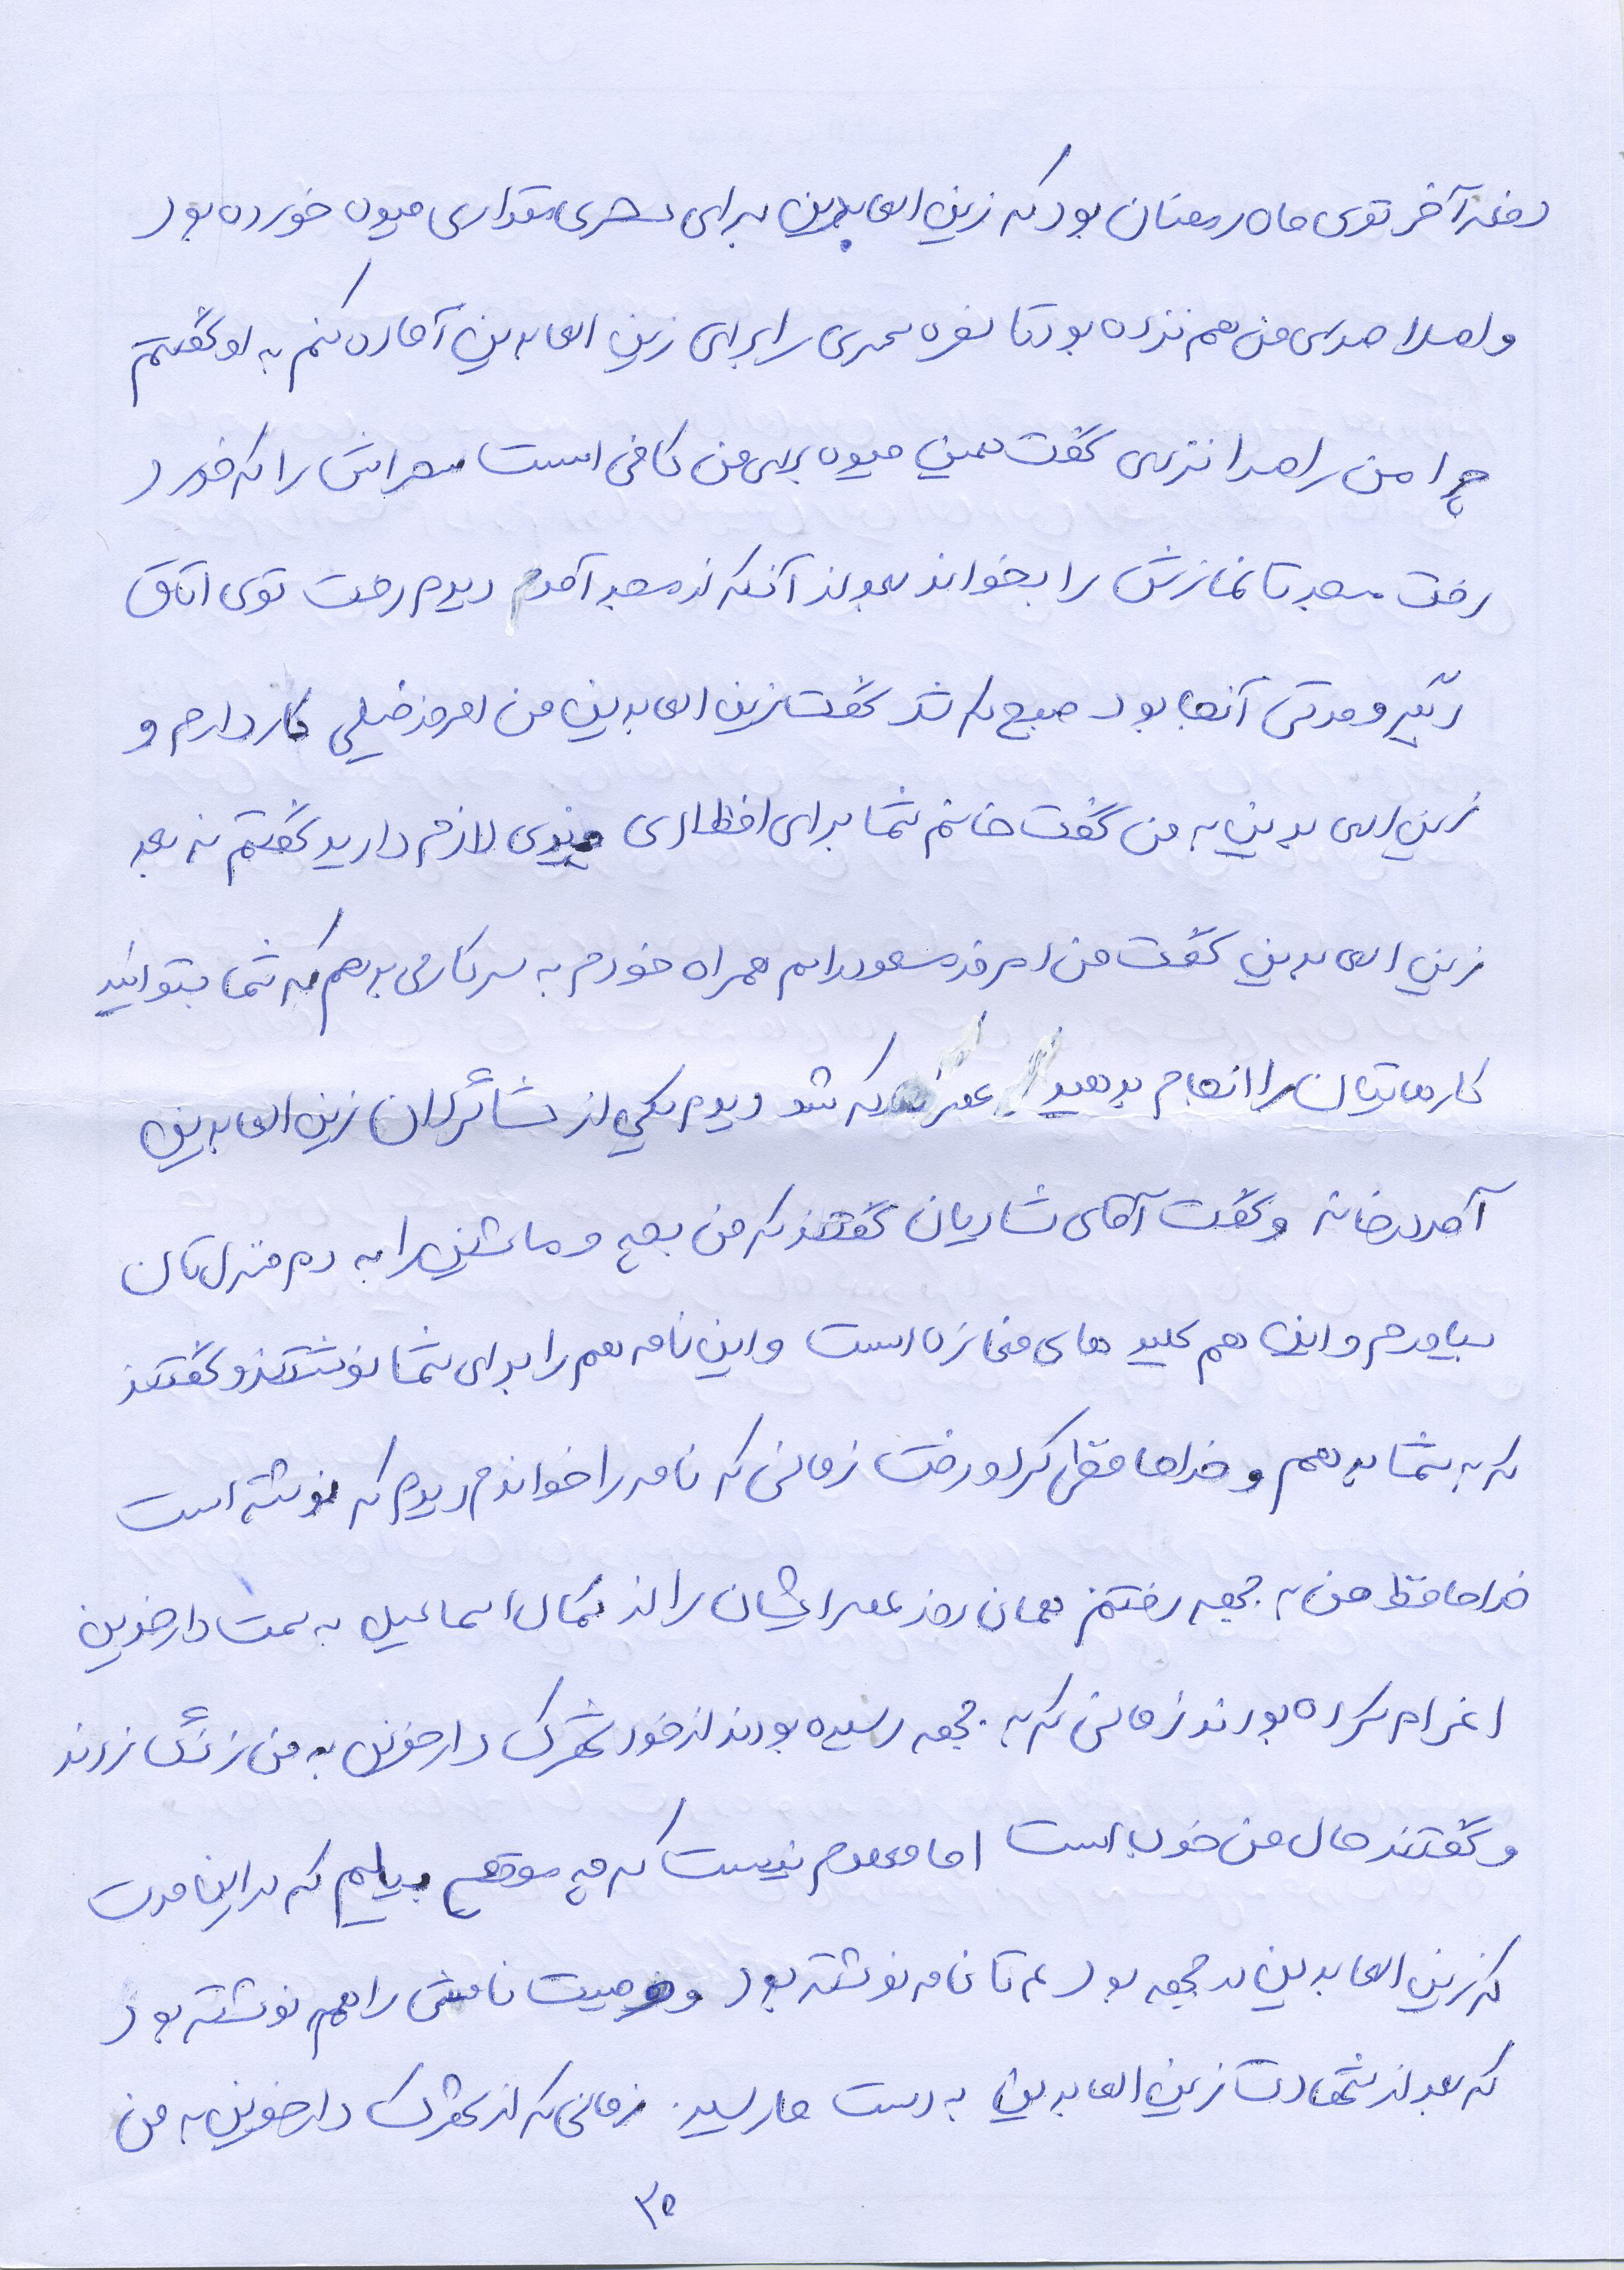 دفعه آخر توی ماه رمضان بود که زین العابدین برای سحری مقداری میوه خورده بود
و اصلا صدای من هم نزده بود تا سفره سحری را برای زین العابدین آماده کنم به او گفتم
چرا من را صدا نزدی گفت همین میوه برای من کافی است سحراش را که خورد
رفت مسجد تا نمازش را بخواند بعد از آنکه از مسجد آمد دیدم رفت توی اتاق
دیگر و مدتی آنجا بود صبح که شد گفت زین العابدین من امروز خیلی کار دارم و
زین العابدین به من گفت خانم شما برای افطاری چیزی لازم دارید گفتم نه بعد
زین العابدین گفت من امروز مسعود را هم همراه خودم به سر کار می برم که شما بتوانید
کارهایتان را انجام بدهید عصر که شد دیدم یکی از شاگردان زین العابدین
آمد در خانه و گفت آقای شاریان گفتند که من بچه و ماشین را به دم منزلتان
بیاورم و این هم کلید های مغازه است و این نامه هم را برای شما نوشتند و گفتند
که به شما بدهم و خداحافظی کرد و رفت زمانی که نامه را خواندم دیدم که نوشته است
خداحافظ من به جبهه رفتم همان روز عصر ایشان را از کمال اسماعیل به سمت دارخوین
اعزام کرده بودند زمانی که به جبهه رسیده بودند از خود شهرک دارخوین به من زنگ زدند
و گفتند حال من خوب است اما معلوم نیست که چه موقع بیایم که در این مدت
که زین العابدین در جبهه بود تا نامه نوشته بود و وصیت نامش را هم نوشته بود
که بعد از شهادت زین العابدین به دست ما رسید. زمانی که از شهرک دارخوین به من
۳۵